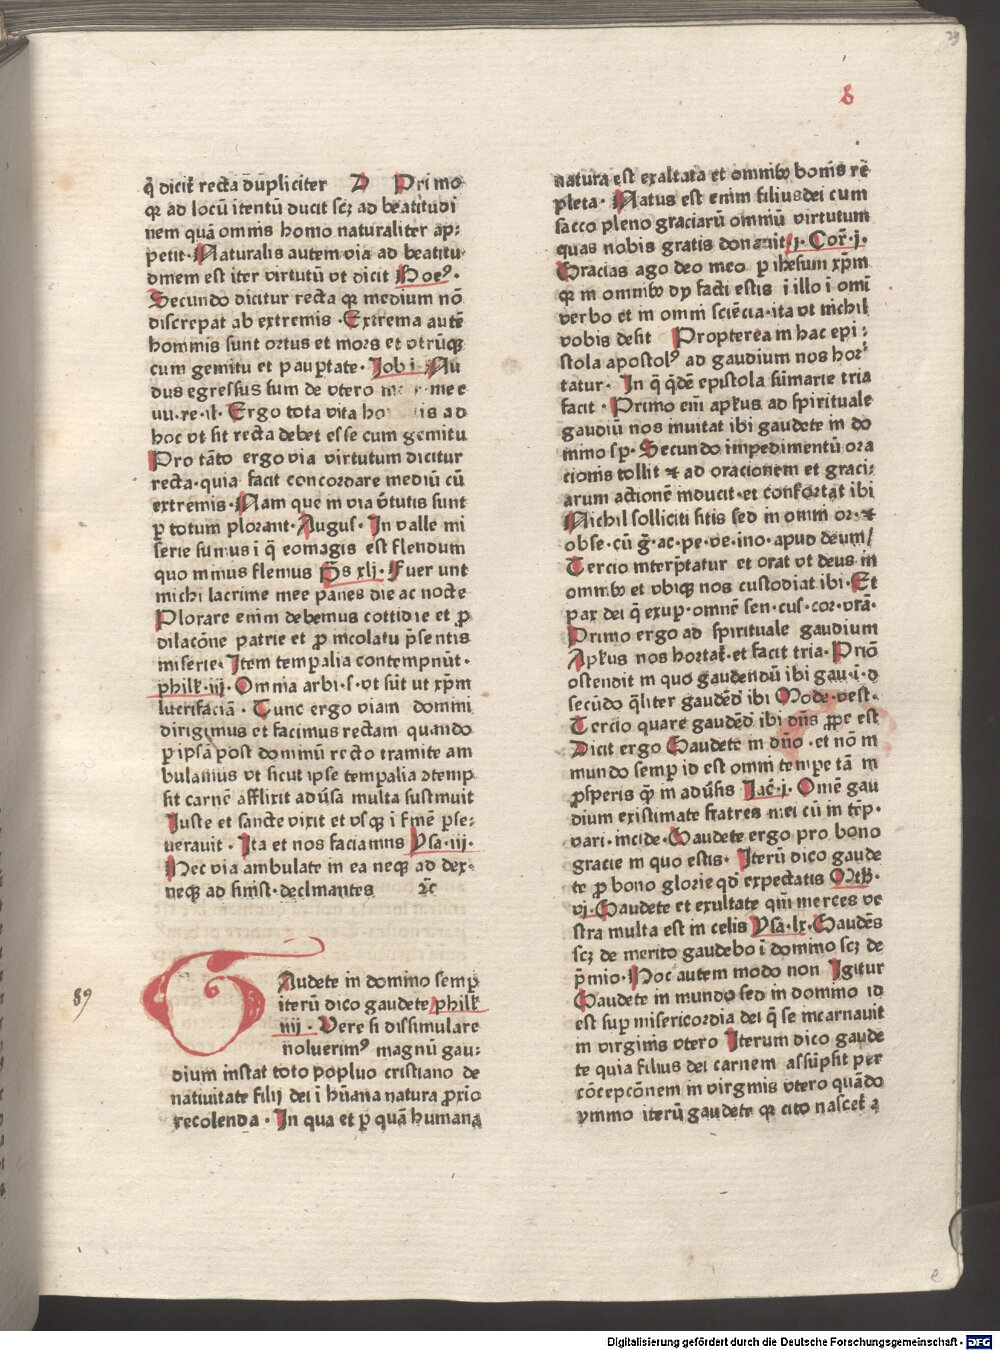 8
q̄ dicit̄ recta dupliciter D Primo
qꝛ ad locū itentū ducit scꝫ ad beatitudi
nem quā omnis homo naturaliter ap:
petit· Naturalis autem via ad beatitu
dinem est iter virtutū vt dicit Boeꝰ·
Secundo dicitur recta qꝛ medium nō
discrepat ab extremis · Extrema autē
hominis sunt ortus et mors et vtrūqꝫ
cum gemitu et paupꝑtate· Iob i· Nu
dus egressus sum de vtero me
uu·re·il· Ergo tota vita ad
hoc vt sit recta debet esse cum gemitu
Pro tāto ergo via virtutum dicitur
recta·quia facit concordare mediū cū
extremis·Nam que in via v̄tutis sunt
ꝑ totum plorant·Augus̄· In valle mi
serie sumus i q̄ eo magis est flendum
quo minus flemus p̄s xlj· Fuerunt
michi lacrime mee panes die ac nocte
Plorare enim debemus cottidie et ꝓ
dilacōne patrie et ꝓ incolatu p̄sentis
miserie·Item temꝑalia contempnūt·
philꝭ·iij·Omnia arbi·s·vt sūt ut xp̄m
lucrifaciā · Tunc ergo viam domini
dirigimus et facimus rectam quando
ꝑ ipsā post dominū recto tramite am
bulamus vt sicut ipse temꝑalia ꝯtemp
sit carnē afflixit adūsa multa sustinuit
Iuste et sancte vixit et vsqꝫ i finē ꝑse-
uerauit · Ita et nos faciamus Ysa·iij·
Hec via ambulate in ea neqꝫ ad dex-
neqꝫ ad sinist·declinantes ⁊c̄
89
GAudete in domino semꝑ
iterū dico gaudete philꝭ
iiij · Vere si dissimulare
noluerimꝰ magnū gau:
dium instat toto popluo cristiano de
natiuitate filij dei i hūana natura ꝓxīo
recolenda · In qua et ꝑ quā humana
natura est exaltata et omnibꝫ bonis re
pleta· Natus est enim filius dei cum
sacco pleno graciarū omniū virtutum
quas nobis gratis donauit j· Cor̄·j·
Gracias ago deo meo ꝑ ihesum xp̄m
qꝛ in omnibꝫ dy facti estis i illo i omī
verbo et in omni sciēcia·ita vt nichil
vobis desit Propterea in hac epi:
stola apostolꝰ ad gaudium nos hor̄
tatur· In q̄ q̄dē epistola sūmarie tria
facit · Primo eīm apl̄us ad spirituale
gaudiū nos inuitat ibi gaudete in do
mino sꝑ· Secundo impedimentū ora
cionis tollit ⁊ ad oracionem et graci:
arum actionē inducit·et confortat ibi
Nichil solliciti sitis sed in omni or·⁊
obse·cū g̅·ac·pe·ve·ino·apud deum/
Tercio interp̄tatur et orat vt deus in
omnibꝫ et vbiqꝫ nos custodiat ibi·Et
pax dei q̄ exuꝑ·omnē sen·cus·cor·vrā·
Primo ergo ad spirituale gaudium
Apl̄us nos hortat̄·et facit tria·Prīo
ostendit in quo gaudendū ibi gau·i·d
secūdo q̄liter gaudēd ibi Mode·vest·
Tercio quare gaudēd ibi dn̄s ꝓpe est
Dicit ergo Gaudete in dn̄o ·et nō in
mundo semꝑ id est omni tempe tā in
ꝓsperis q̄ꝫ in adūsis Iac̄·j· Omē gau
dium existimate fratres mei cū in tēp·
vari·incide·Gaudete ergo pro bono
gracie in quo estis· Iterū dico gaude
te ꝓ bono glorie qd̄ expectatis Mth̄·
vj·Gaudete et exultate qm̄ merces ve
stra multa est in celis Ysa·lx·Gaudēs
scꝫ de merito gaudebo i domino scꝫ de
p̄mio·Hoc autem modo non Igitur
Gaudete in mundo sed in domino id
est suꝑ misericordia dei q̄ se incarnauit
in virginis vtero Iterum dico gaude
te quia filius dei carnem assūpsit per
cōcepcōnem in virginis vtero quādo
ymmo iterū gaudete qꝛ cito nascet̄ a
e
Digitalisierung gefördert durch die Deutsche Forschungsgemeinschaft - DFG